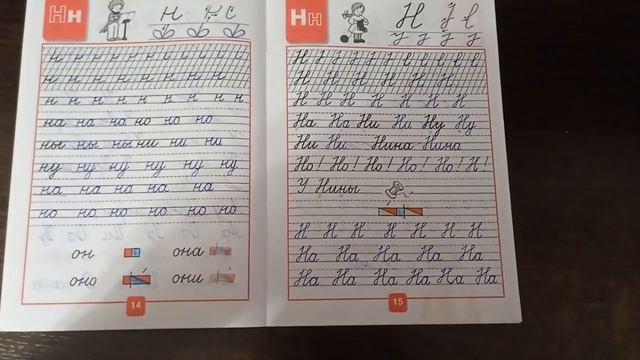 Нн
н
н н н н н н н н н н н
н н н н н н н н н
н н н н н н н н
на на на но но но
ны ны ны ни ни ни
ну ну ну ну ну ну
на на на на на
но но но но но но
он она
оно они
14
Нн
Н
Н Н Н Н Н Н
Н Н Н Н Н Н Н
На На Ни Ни Ну Ну
Ни Ни Нина Нина
Но! Но! Но! Но! Но! Н!
У Нины
Н Н Н Н Н Н Н
На На На На На
На На На На На На
15